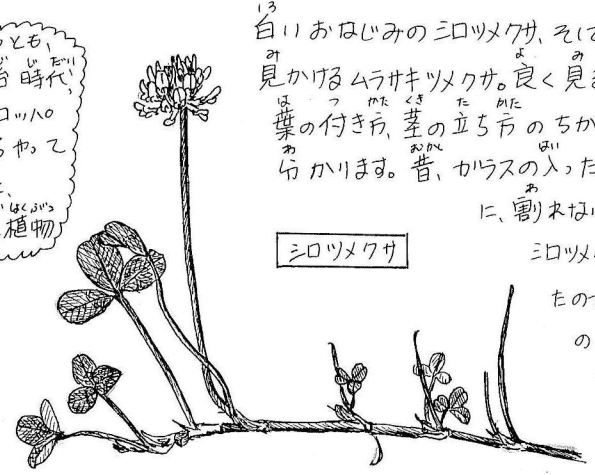 とも、
時代
ロッパ
やって
植物
白いおなじみのシロツメクサ、そして
見かけるムラサキツメクサ。良く見
葉の付き方、茎の立ち方のちが
分かります。昔、ガラスの入った
に、割れな
シロツメ
たの
の
シロツメクサ